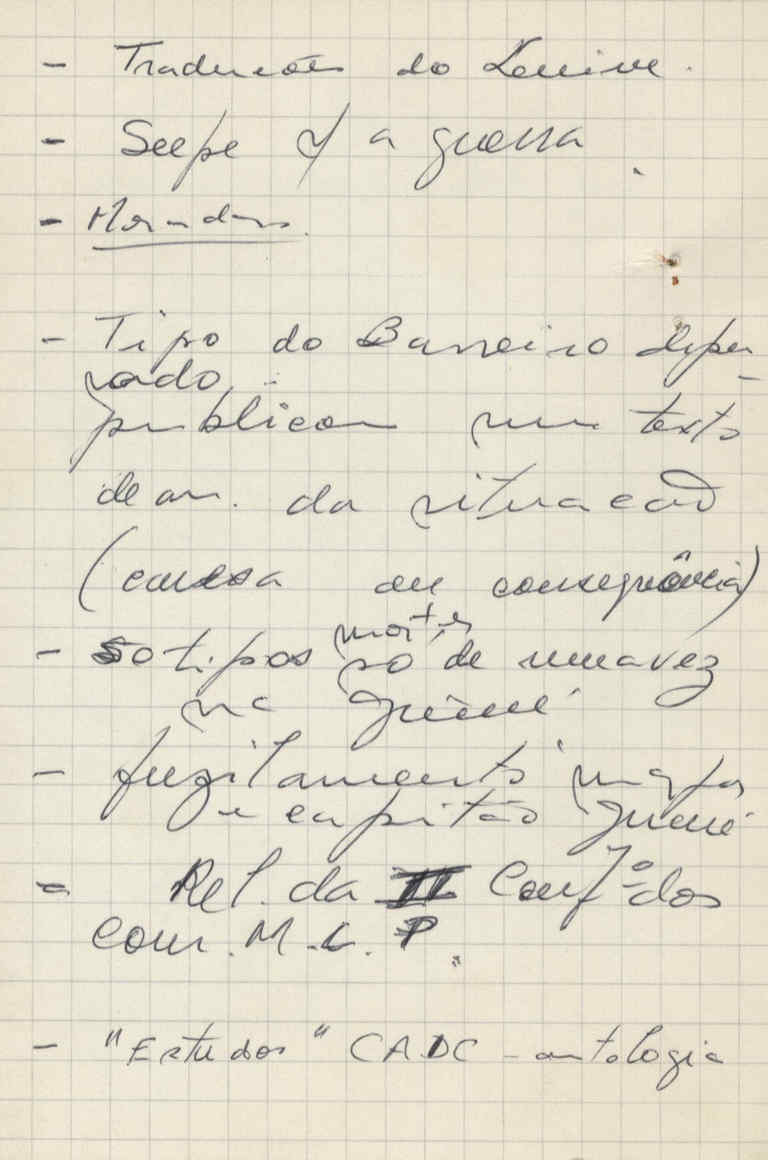 - Traduções do Lenine.
- Seepe e a guerra.
- Moradas.
- Tipo do Barreiro depu
rado,
publicou um texto
de an. da situação
(causa ou consequência)
- 50 tipos mortos só de uma vez
na Guiné
- fuzilamento major
e capitão Guiné
- Rel. da II Conf.ª dos
com. M.L.P.
- "Estudos" CADC - antologia